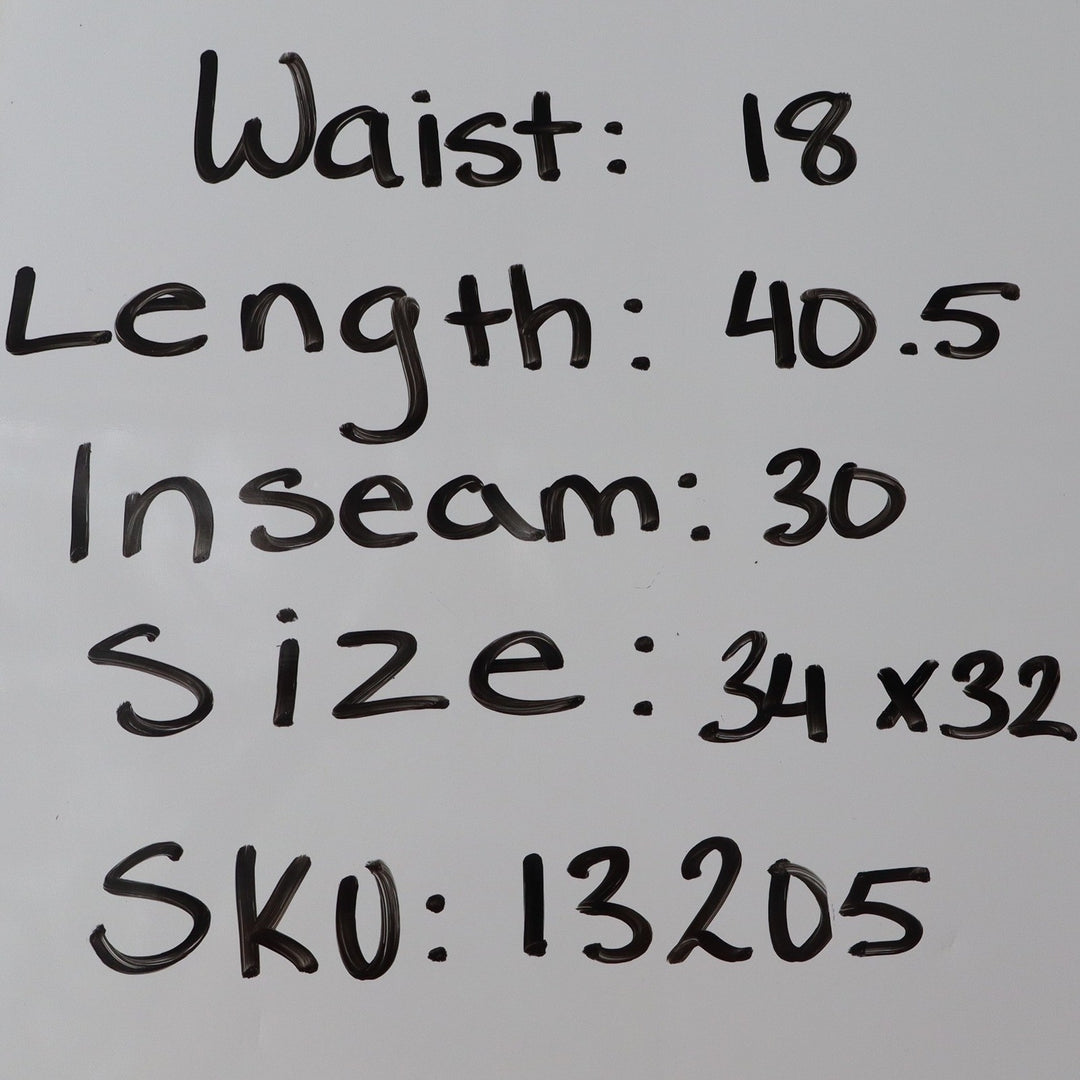 Waist: 18
Length: 40.5
Inseam: 30
Size: 34 x 32
SKU: 13205